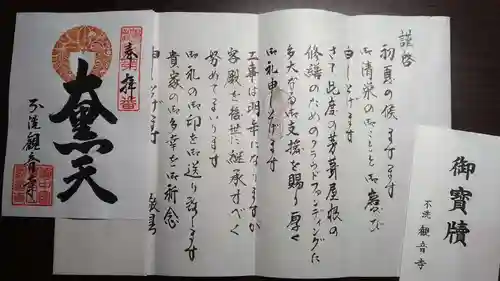 謹啓
初夏の候 ますます
御清栄のことと御慶び
申し上げます
さて此度の茅葺屋根の
修繕のためのクラウドファンディングに
多大なる御支援を賜り厚く
御礼申し上げます
工事は明年になりますが
客殿を後世に継承すべく
努めてまいります
御礼の御印を御送り致します
貴家の御多幸を御祈念
申し上げます
敬具
奉拝
大黒天
不洗観音寺
御寳牘
不洗 観音寺